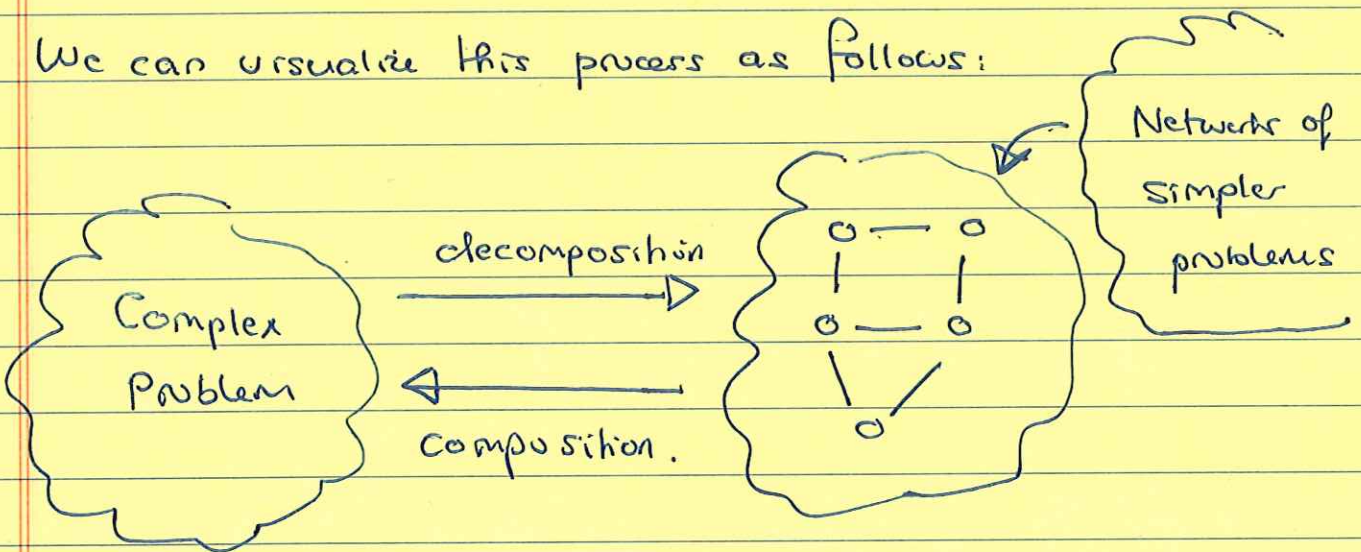 We can visualize this process as follows:
Networks of
simpler
problems
decomposition
Complex
Problem
composition.